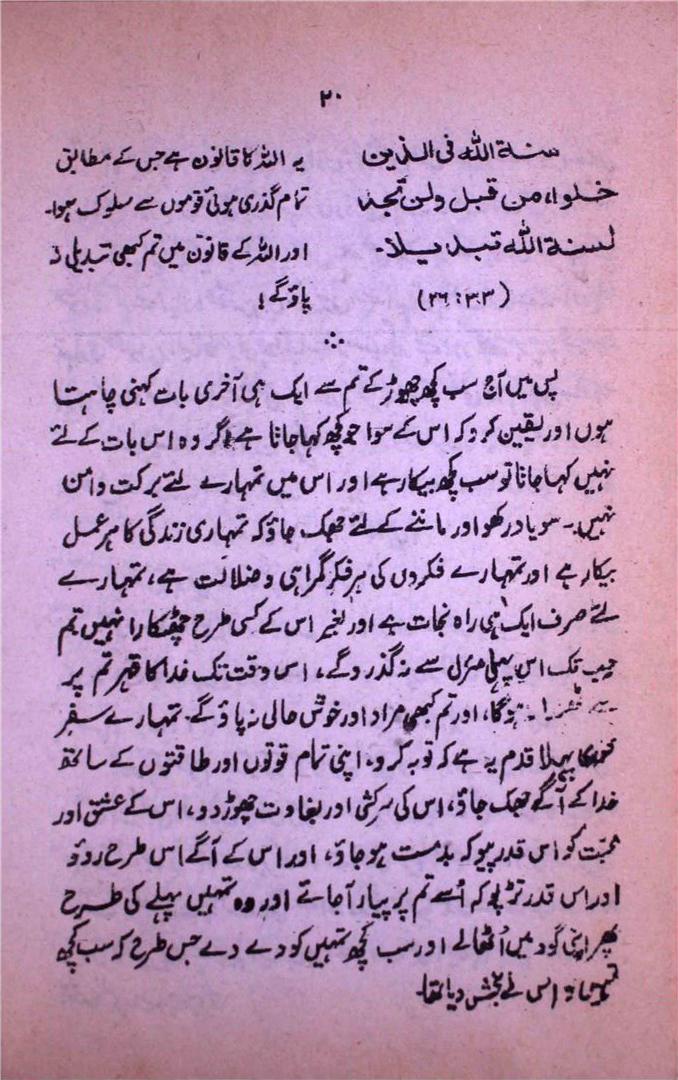 ۲۰
سنة الله فى الذين
خلوا من قبل ولن تجد
لسنة الله تبديلا۔
(۳۳ : ۲۶)
یہ اللہ کا قانون ہے جس کے مطابق
تمام گذری ہوئی قوموں سے سلوک ہوا۔
اور اللہ کے قانون میں تم کبھی تبدیلی نہ
پاؤ گے!
پس میں آج سب کچھ چھوڑ کے تم سے ایک ہی آخری بات کہنی چاہتا
ہوں اور یقین کرو کہ اس کے سوا جو کچھ کہا جاتا ہے اگر وہ اس بات کے لئے
نہیں کہا جاتا تو سب کچھ بیکار ہے اور اس میں تمہارے لئے برکت و امن
نہیں۔ سو یاد رکھو اور ماننے کے لئے جھک جاؤ کہ تمہاری زندگی کا ہر عمل
بیکار ہے اور تمہارے فکروں کی ہر فکر گمراہی و ضلالت ہے، تمہارے
لئے صرف ایک ہی راہ نجات ہے اور بغیر اس کے کسی طرح چھٹکارا نہیں تم
جب تک اس پہلی منزل سے نہ گذرو گے، اس وقت تک خدا کا قہر تم پر
سے ہوگا، اور تم کبھی مراد اور خوش حالی نہ پاؤ گے۔ تمہارے سفر
کا پہلا قدم یہ ہے کہ توبہ کرو، اپنی تمام قوتوں اور طاقتوں کے ساتھ
خدا کے آگے جھک جاؤ، اس کی سرکشی اور بغاوت چھوڑ دو، اس کے عشق اور
محبت کو اس قدر پیو کہ بدمست ہو جاؤ، اور اس کے آگے اس طرح روؤ
اور اس قدر تڑپو کہ اُسے تم پر پیار آجائے اور وہ تمہیں پہلے کی طرح
پھر اپنی گود میں اُٹھالے اور سب کچھ تمہیں کو دے دے جس طرح کہ سب کچھ
اس نے بخش دیا تھا۔